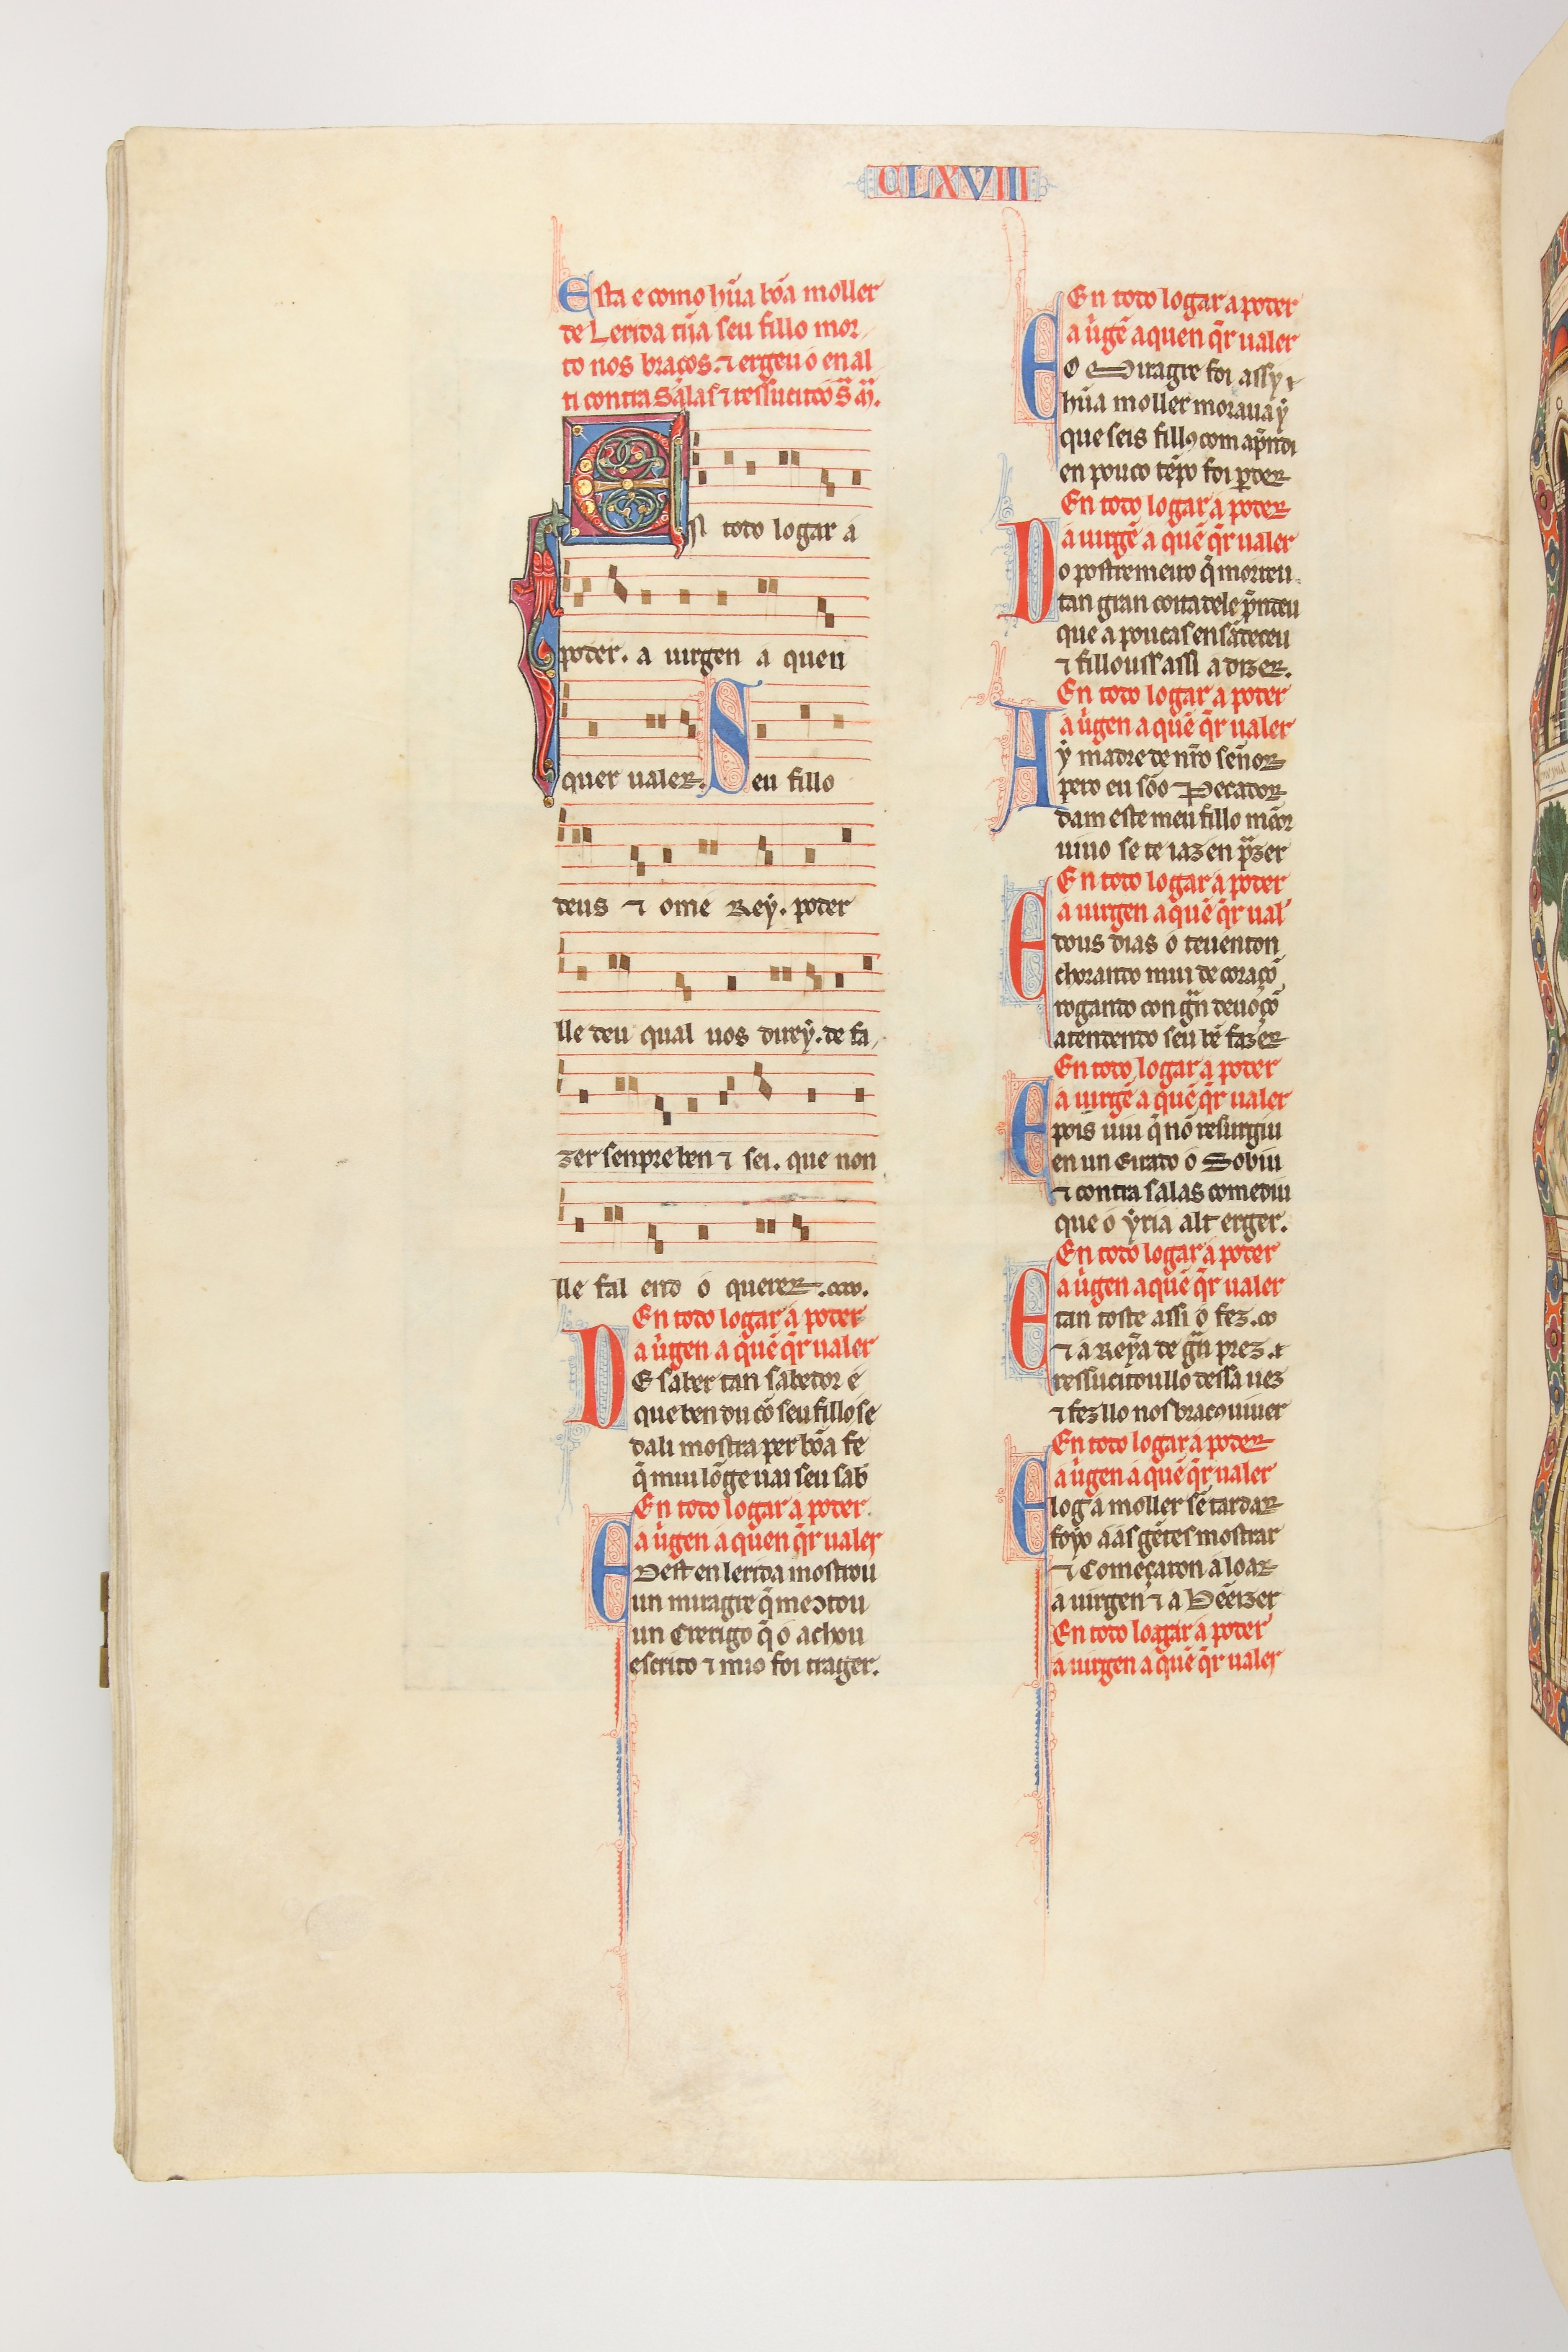 CLXVIII
Esta e como hũa bõa moller
de Lerida tijía seu fillo mor
to nos braços. ⁊ ergeu o en al
ti contra Salas ⁊ ressucitoo S. M.
En toto logar á
poder. a uirgen a quen
quer ualer. Seu fillo
deus ⁊ ome Rey. poder
lle deu qual uos direy. de fa
zer senpre ben ⁊ sei. que non
lle fal end o querer.
En todo logar á poder
a uirgen a quẽ q̃r ualer
De saber tan sabedor é
que ben du cõ seu fillo se
dali mostra per bõa fe
q̃ mui lõge uai seu sab
En todo logar á poder
a uirgen á quen q̃r ualer
E dest en lerida mostrou
un miragre q̃ me ɔtou
un Crerigo q̃ o achou
escrito ⁊ mio foi trager.
En todo logar a poder
a uirgẽ a quen q̃r ualer
E o Miragre foi assy
hũa moller moraua ẏ
que seis fillꝯ com ap̃ndi
en pouco tẽpo foi ꝑder
En todo logar á poder
a uirgẽ a quẽ q̃r ualer
Do postremeiro q̃ morreu
tan gran coita dele p̃ndeu
que a poucas ensãdeceu
⁊ fillouss assi a dizer.
En todo logar a poder
a uirgen a quẽ q̃r ualer
Aẏ madre de nr̃o señor
pero eu sõo Pecador
dam este meu fillo mẽor
uiuo se te iaz en p̃zer
En todo logar á poder
a uirgen a quẽ q̃r ual
E dous dias o teue nton
chorando mui de coraçõ
rogando con gr̃n deuoçõ
atendendo seu bẽ fazer
En todo logar á poder
a uirgẽ a quẽ q̃r ualer
E pois uiu q̃ nõ resurgiu
en un Eirado o Sobiu
⁊ contra salas comediu
que o ẏria alt erger.
En todo logar á poder
a uirgen a quẽ q̃r ualer
E tan toste assi o fez
⁊ a Reẏa de gr̃n prez
ressucitoullo dessa uez
⁊ fezllo nos braçꝯ uiuer
En todo logar á poder
a uirgen á quẽ q̃r ualer
E log a moller sẽ tardar
foyo aas gẽtes mostrar
⁊ Começaron á loar
a uirgen ⁊ a Bẽeizer
En todo logar á poder
a uirgen a quẽ q̃r ualer